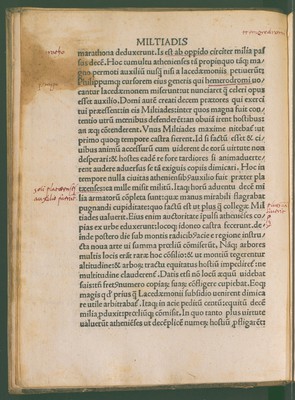 MILTIADIS
marathona deduxerunt. Is est ab oppido circiter milia pas
sus decē. Hoc tumultu athenienses tā propinquo tāq; ma
gno permoti auxiliū nusq̃ nisi a lacedæmoniis petiuerūt;
Philippumq; cursorem eius generis qui hemerodromi uo
cantur lacedæmonem miserunt ut nunciaret q̃ celeri opus
esset auxilio. Domi autē creāt decem prætores qui exerci
tui præessent: in eis Miltiadē: inter quos magna fuit con
tentio utrū mœnibus defenderēt: an obuiā irent hostibus:
an acie cōtenderent. Vnus Miltiades maxime nitebat᷑ ut
primo quoq; tempore castra fierent. Id si factū esset & ci
uibus animū accessurū cum uiderent de eorū uirtute non
desperari: & hostes eadē re fore tardiores si animaduerte
rent audere aduersus se tā exiguis copiis dimicari. Hoc in
tempore nulla ciuitas atheniensibus auxilio fuit præter pla
tæenses: ea mille misit militū. Itaq; horū aduentu decē mi
lia armatorū cōpleta sunt: quæ manus mirabili flagrabat
pugnandi cupiditate: quo factū est ut plus q̃ collegæ Mil
tiades ualuerit. Eius enim auctoritate īpulsi athenienses co
pias ex urbe eduxerunt: locoq; idoneo castra fecerunt: de
inde postero die sub montis radicibus acie e regione instru
cta noua arte ui summa prœliū cōmiserūt. Nāq; arbores
multis locis erāt raræ hoc cōsilio: & ut montiū tegerentur
altitudine: & arborū tractu equitatus hostiū impediret᷑: ne
multitudine clauderent᷑. Datis etsi nō locū æquū uidebat
suis: tñ fretus numero copiarū suarū cōfligere cupiebat. Eoq;
magis q̊d prius q̃ Lacedæmonii subsidio uenirent dimica
re utile arbitrabat᷑. Itaq; in acie peditū centū: equitū decē
milia produxit: prœliūq; cōmisit. In quo tanto plus uirtute
ualuerūt athenienses ut decēplicē numerū hostiū profligarēt